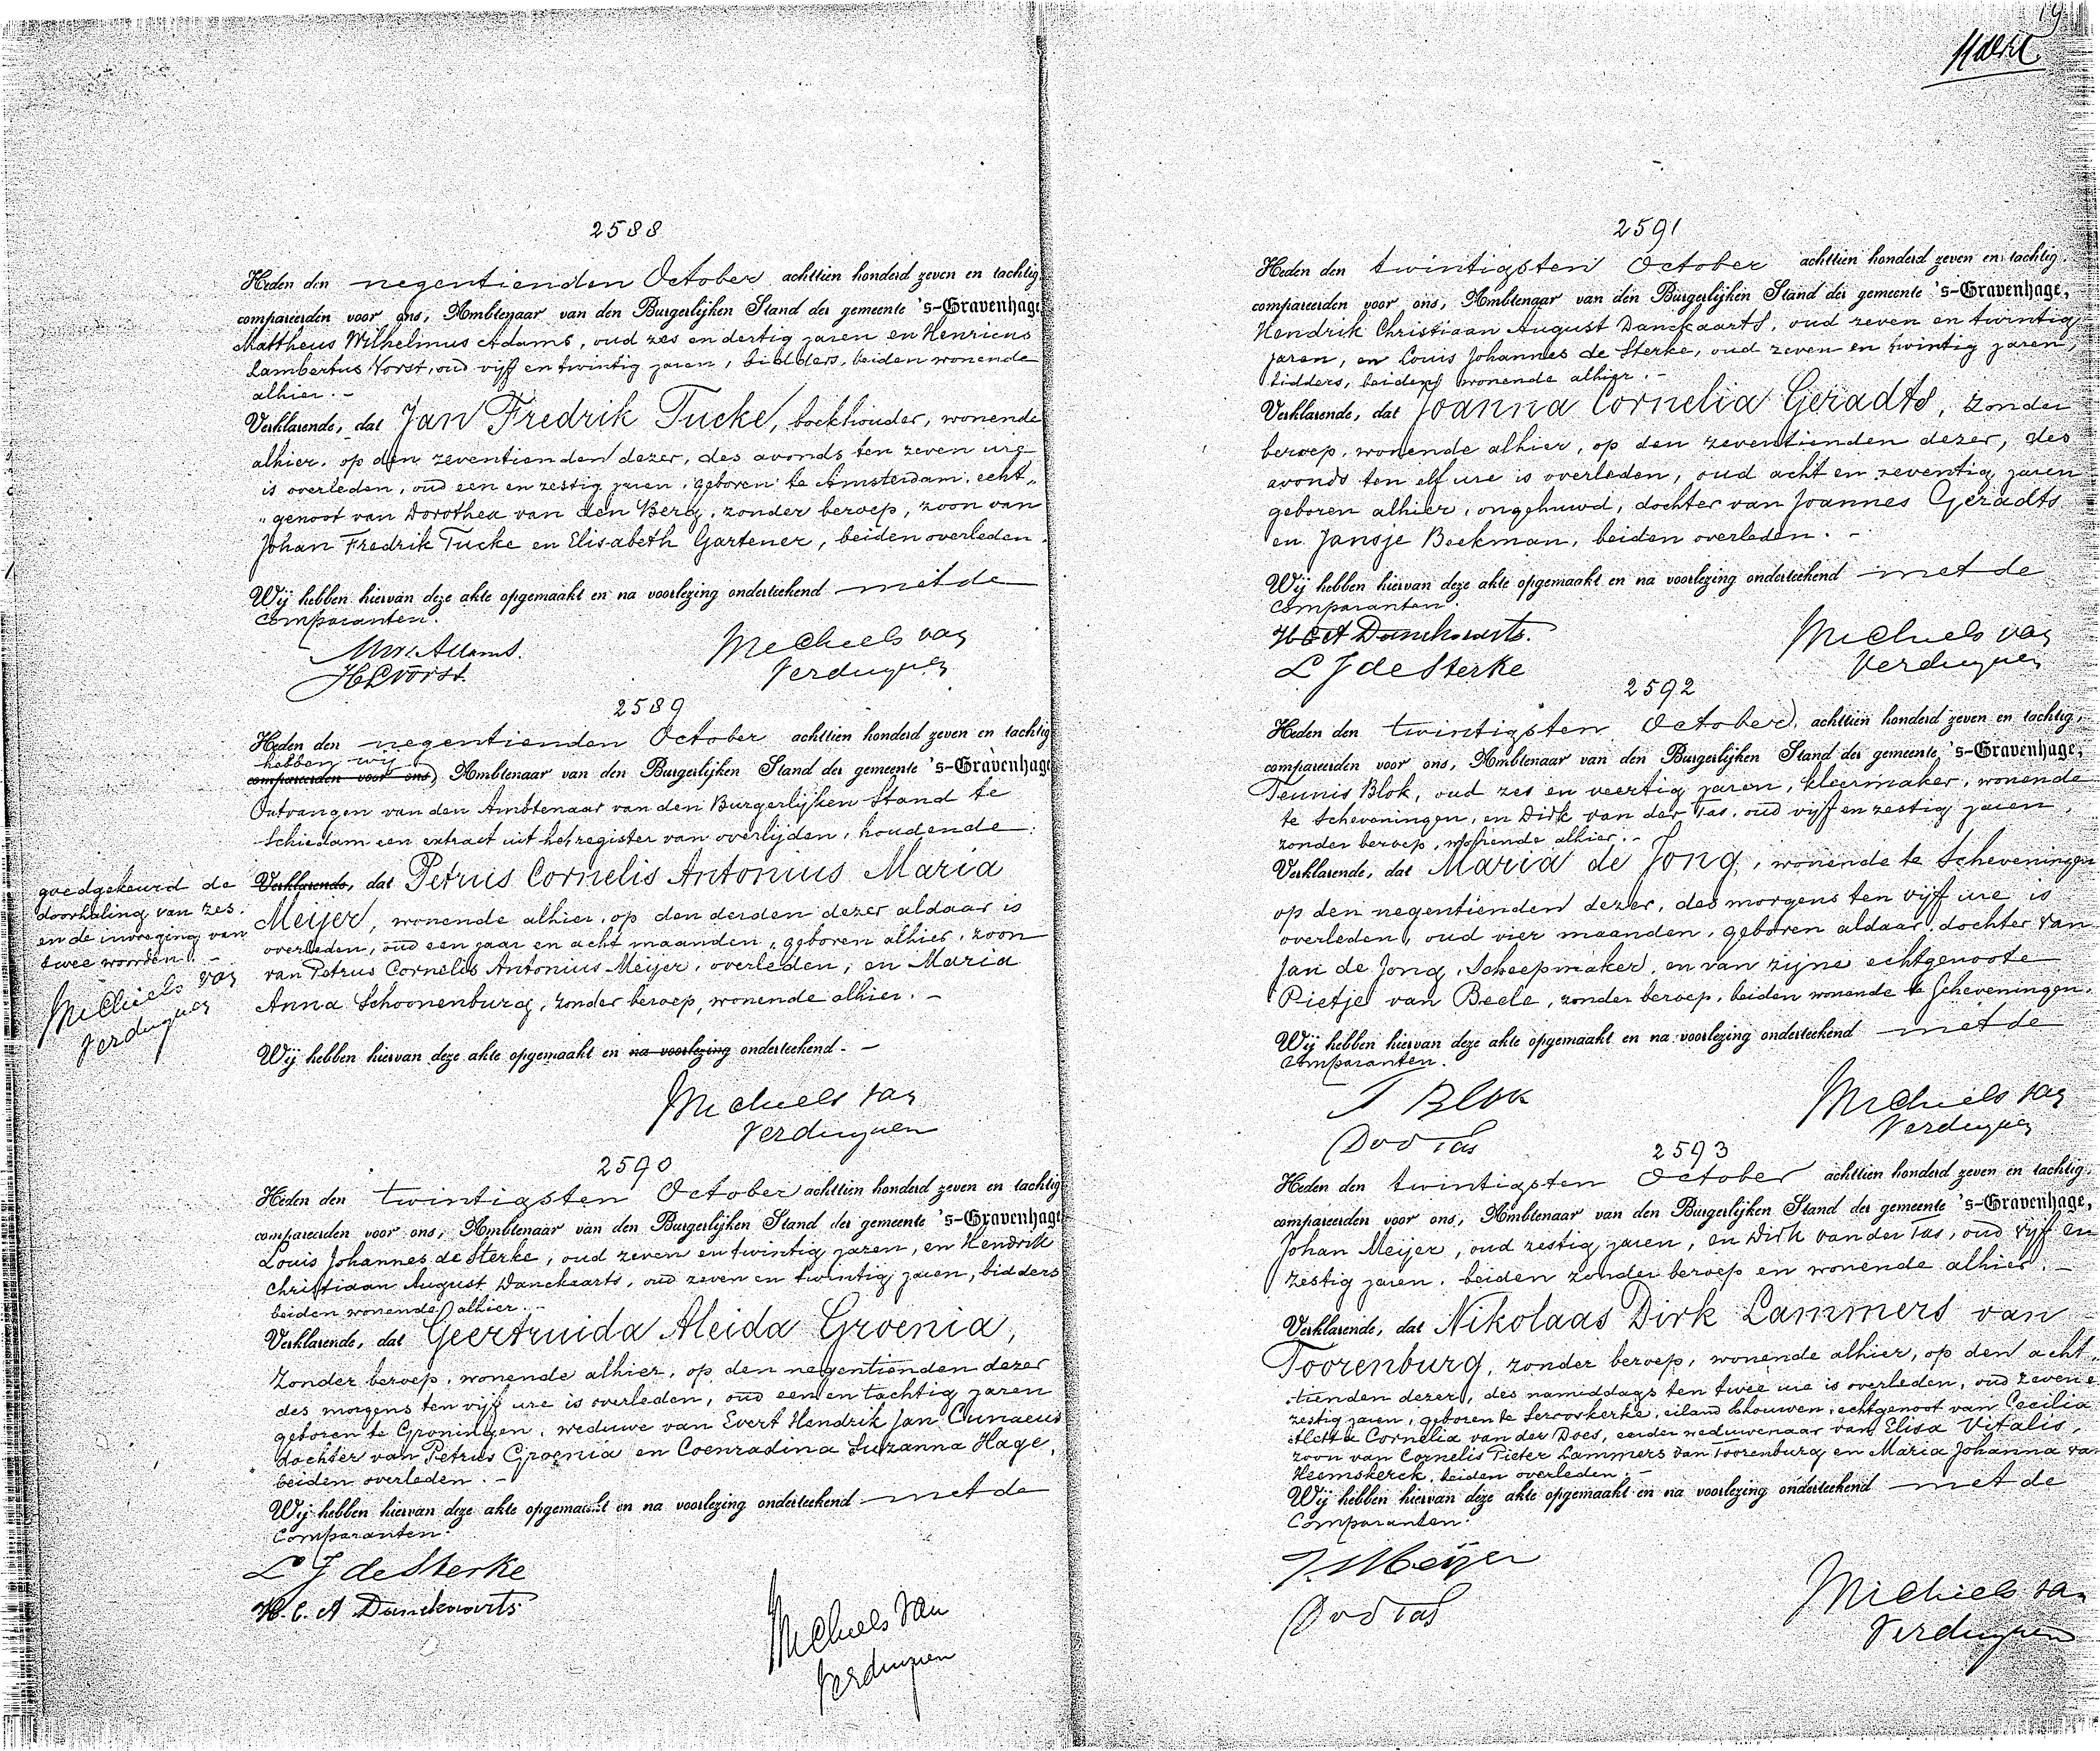 2588
Heden den negentienden October achttien honderd zeven en tachtig,
compareerden voor ons, Ambtenaar van den Burgerlijken Stand der gemeente 's-Gravenhage
Mattheus Wilhelmus Adams, oud zes en dertig jaren en Henricus
Lambertus Vorst, oud vijf en twintig jaren, bidders, beiden wonende
alhier. -
Verklarende, dat Jan Fredrik Tucke, boekhouder, wonende
alhier, op den zeventienden dezer, des avonds ten zeven ure
is overleden, oud een en zestig jaren, geboren te Amsterdam, echt„
„genoot van Dorothea van den Berg, zonder beroep, zoon van
Johan Fredrik Tucke en Elisabeth Gartener, beiden overleden.
Wij hebben hiervan deze akte opgemaakt en na voorlezing onderteekend met de
comparanten.
MW Adams.
HLVorst.
Michiels van
Verduynen
2589
Heden den negentienden October achttien honderd zeven en tachtig
hebben wij
compareerden voor ons, Ambtenaar van den Burgerlijken Stand der gemeente 's-Gravenhage
Ontvangen van den Ambtenaar van den Burgerlijken Stand te
Schiedam een extract uit het register van overlijden, houdende:
Verklarende, dat Petrus Cornelis Antonius Maria
Meijer, wonende alhier, op den derden dezer aldaar is
overleden, oud een jaar en acht maanden, geboren alhier, zoon
van Petrus Cornelis Antonius Meijer, overleden, en Maria
Anna Schoonenburg, zonder beroep, wonende alhier. -
Wij hebben hiervan deze akte opgemaakt en na voorlezing onderteekend. -
Michiels van
Verduynen
goedgekeurd de
doorhaling van zes
en de invoeging van
twee woorden. -
Michiels van
Verduynen
2590
Heden den twintigsten October achttien honderd zeven en tachtig
compareerden voor ons, Ambtenaar van den Burgerlijken Stand der gemeente 's-Gravenhage
Louis Johannes de Sterke, oud zeven en twintig jaren, en Hendrik
Christiaan August Danckaarts, oud zeven en twintig jaren, bidders
beiden wonende alhier. -
Verklarende, dat Geertruida Aleida Groenia,
zonder beroep, wonende alhier, op den negentienden dezer
des morgens ten vijf ure is overleden, oud een en tachtig jaren
geboren te Groningen, weduwe van Evert Hendrik Jan Cunaeus
dochter van Petrus Groenia en Coenradina Suzanna Hage,
beiden overleden. -
Wij hebben hiervan deze akte opgemaakt en na voorlezing onderteekend met de
comparanten.
L J de Sterke
H. C. A Danckaarts
Michiels van
Verduynen
2591
Heden den twintigsten October achttien honderd zeven en tachtig,
compareerden voor ons, Ambtenaar van den Burgerlijken Stand der gemeente 's-Gravenhage,
Hendrik Christiaan August Danckaarts, oud zeven en twintig
jaren, en Louis Johannes de Sterke, oud zeven en twintig jaren,
bidders, beiden wonende alhier. -
Verklarende, dat Joanna Cornelia Geradts, zonder
beroep, wonende alhier, op den zeventienden dezer, des
avonds ten elf ure is overleden, oud acht en zeventig jaren
geboren alhier, ongehuwd, dochter van Joannes Geradts
en Jansje Beekman, beiden overleden. -
Wij hebben hiervan deze akte opgemaakt en na voorlezing onderteekend met de
comparanten.
H C A Danckaarts.
L J de Sterke
Michiels van
Verduynen
2592
Heden den twintigsten October, achttien honderd zeven en tachtig,
compareerden voor ons, Ambtenaar van den Burgerlijken Stand der gemeente 's-Gravenhage,
Teunis Blok, oud zes en veertig jaren, kleermaker, wonende
te Scheveningen, en Dirk van der Tas, oud vijf en zestig jaren,
zonder beroep, wonende alhier. -
Verklarende, dat Maria de Jong, wonende te Scheveningen
op den negentienden dezer, des morgens ten vijf ure is
overleden, oud vier maanden, geboren aldaar, dochter van
Jan de Jong, Scheepmaker, en van zijne echtgenoote
Pietje van Beele, zonder beroep, beiden wonende te Scheveningen.
Wij hebben hiervan deze akte opgemaakt en na voorlezing onderteekend met de
Comparanten.
T Blok
D v d Tas
Michiels van
Verduynen
2593
Heden den twintigsten October achttien honderd zeven en tachtig,
compareerden voor ons, Ambtenaar van den Burgerlijken Stand der gemeente 's-Gravenhage,
Johan Meijer, oud zestig jaren, en Dirk van der Tas, oud vijf en
zestig jaren, beiden zonder beroep en wonende alhier. -
Verklarende, dat Nikolaas Dirk Lammers van
Toorenburg, zonder beroep, wonende alhier, op den acht„
„tienden dezer, des namiddags ten twee ure is overleden, oud zeven e
zestig jaren, geboren te Serooskerke, eiland Schouwen, echtgenoot van Cecilia
Aletta Cornelia van der Does, eerder weduwenaar van Elisa Vitalis,
zoon van Cornelis Pieter Lammers van Toorenburg en Maria Johanna va
Heemskerck, beiden overleden. -
Wij hebben hiervan deze akte opgemaakt en na voorlezing onderteekend met de
Comparanten.
J. Meijer
D v d Tas
Michiels va
Verduynen